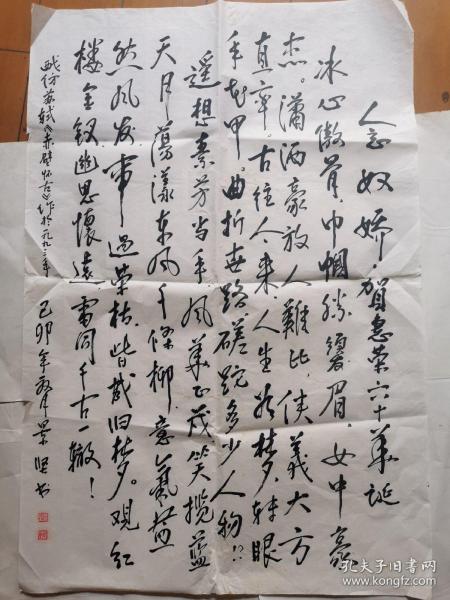 念奴娇·贺惠荣六十华诞
冰心傲骨,巾帼胜须眉,女中豪
杰。潇洒豪放人难比,侠义大方
直率。古往人来,人生如梦,转眼
年花甲。曲折世路磋跎多少人物!?
遥想素芳当年,风华正茂,笑揽蓝
天月。荡漾东风千条柳,意气
然风发。事过荣枯,皆成旧梦。观红
楼金钗,遐思怀远,雷同千古一辙!
戏仿苏轼《赤壁怀古》作于一九九三年
己卯年 月 景坚书
孔夫子旧书网
www.kongfz.com